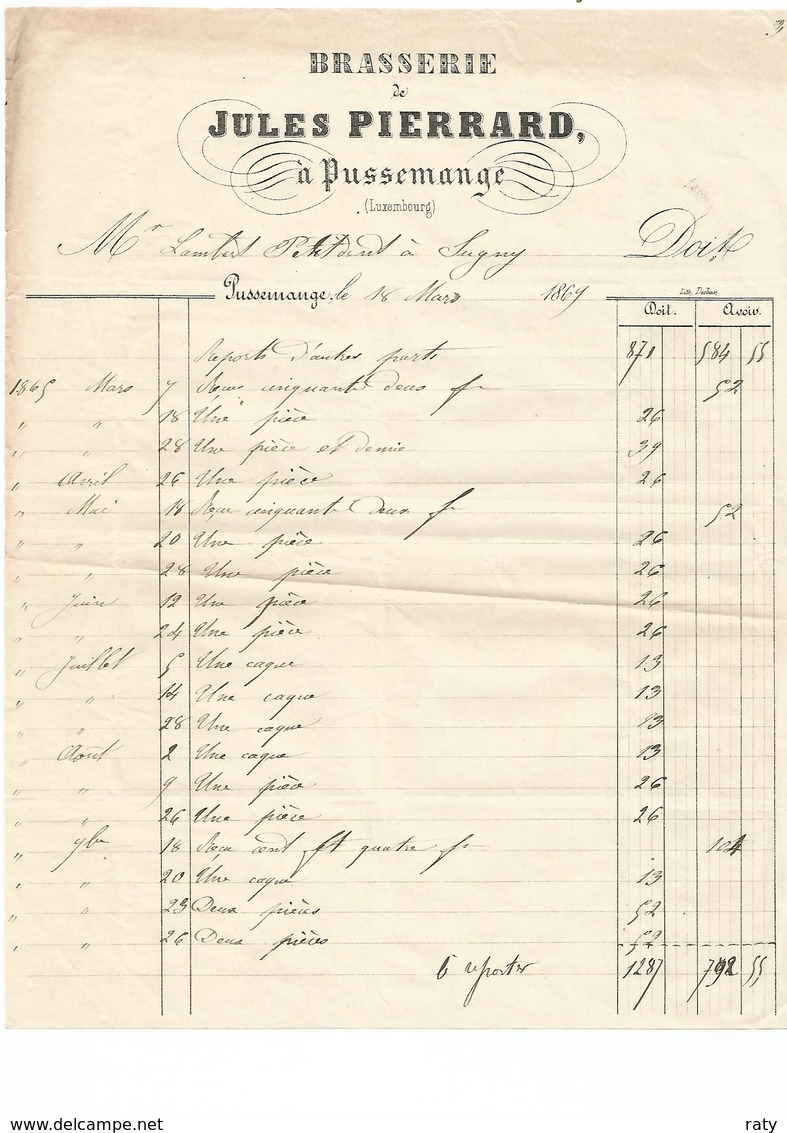 3
BRASSERIE
de
JULES PIERRARD,
à Pussemange
(Luxembourg)
Mr Lambert Petit à Sugny Doit
Pussemange, le 18 Mars 1869
Lith. Doit. Avoir.
Reports d'autres parts 871 584 55
1865 Mars 7 Reçu cinquante deux fr 52
" " 18 Une pièce 26
" " 28 Une pièce et demie 39
" Avril 26 Une pièce 26
" Mai 18 Reçu cinquante deux fr 52
" " 20 Une pièce 26
" " 28 Une pièce 26
" Juin 12 Une pièce 26
" " 24 Une pièce 26
" Juillet 5 Une caque 13
" " 14 Une caque 13
" " 28 Une caque 13
" Août 2 Une caque 13
" " 9 Une pièce 26
" " 26 Une pièce 26
" 9bre 18 Reçu cent et quatre fr 104
" " 20 Une caque 13
" " 23 Deux pièces 52
" " 26 Deux pièces 52
à reporter 1287 792 55
www.delcampe.net
raty